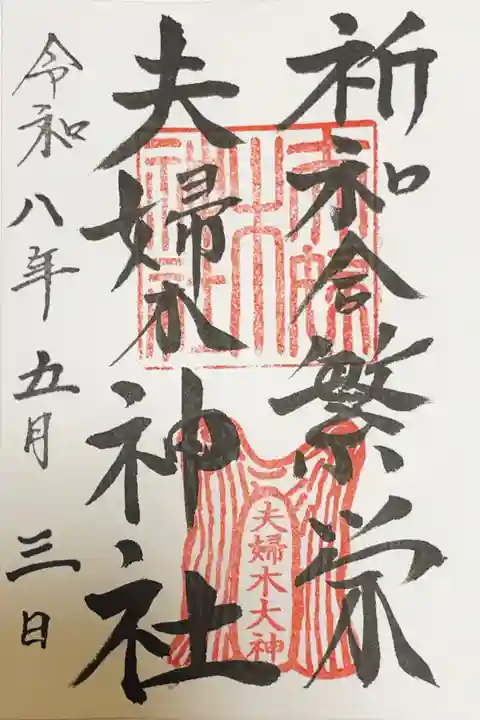 祈和合繁栄
夫婦木神社
夫婦木大神
令和八年五月三日